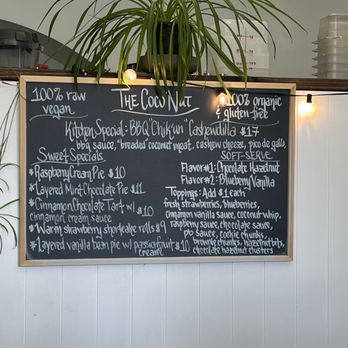 100% raw
vegan
THE COCO NUT
100% organic
& gluten-free
Kitchen Special: BBQ "Chik'un" Cashewdilla $17
bbq sauce, "breaded" coconut meat, cashew cheeze, pico de gallo
Sweet Specials
*Raspberry Cream Pie $10
*Layered Mint Chocolate Pie $11
*Cinnamon Chocolate Tart w/ $10
cinnamon cream sauce
*Warm strawberry shortcake rolls $9
*Layered vanilla bean pie w/ passionfruit $10
cream
SOFT-SERVE
Flavor #1: Chocolate Hazelnut
Flavor #2: Blueberry Vanilla
Toppings: Add $1 each
fresh strawberries, blueberries,
cinnamon vanilla sauce, coconut whip,
raspberry sauce, chocolate sauce,
pb sauce, cookie chunks,
brownie chunks, hazelnut bits,
chocolate hazelnut clusters